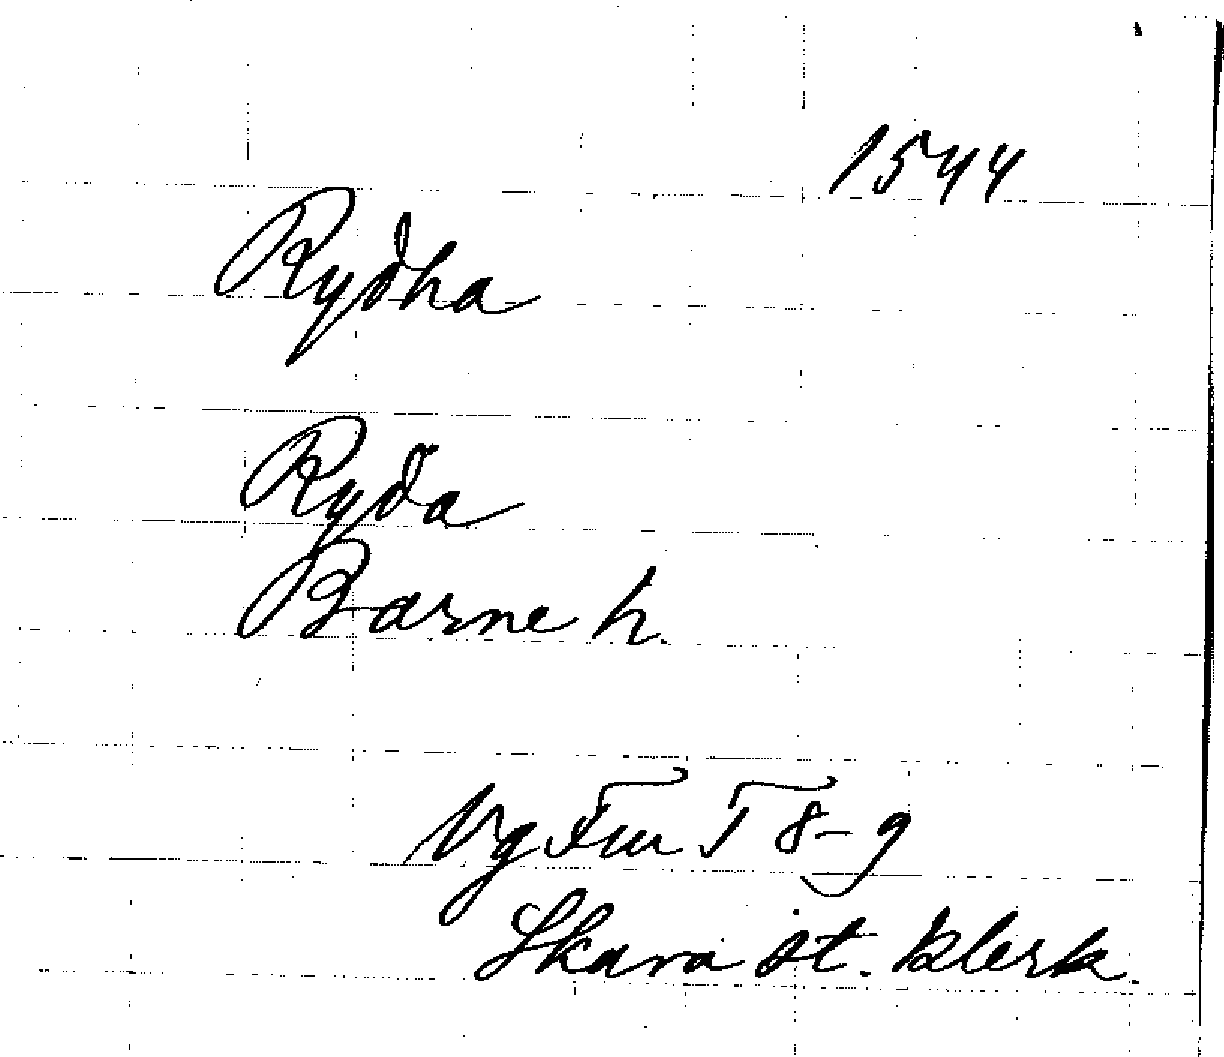 1544
Rydha
Ryda
Barne h.
Vg Fur T 8-9
Skara st. klerk.